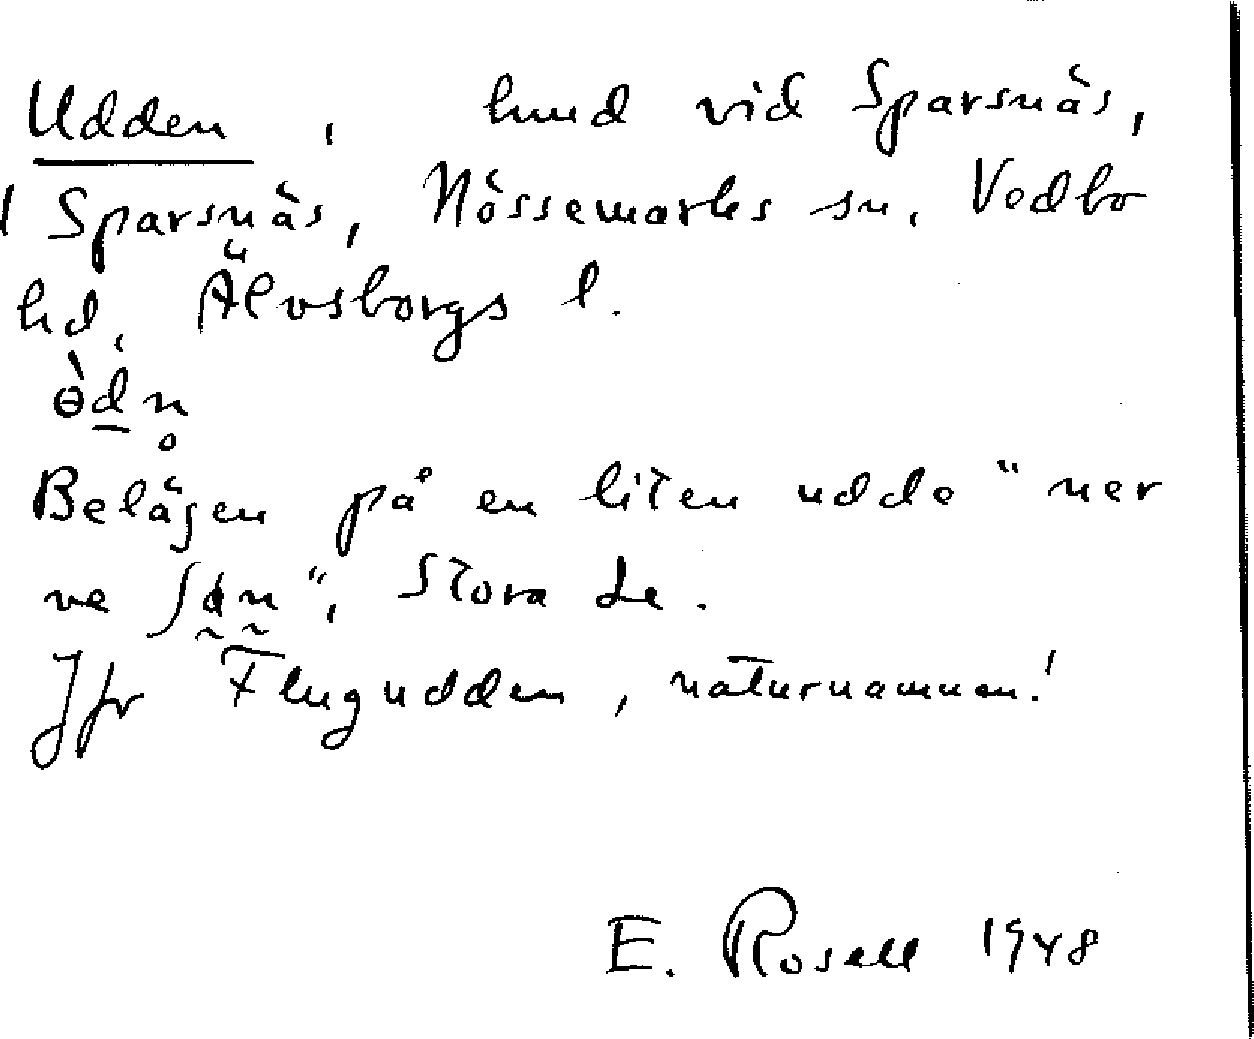 Udden, hmd vid Sparsnäs,
Sparsnäs, Nössemarks sn, Vedbo
hd, Älvsborgs l.
Belägen på en liten udde "ner
ve", Stora Le.
Jfr Flugudden, naturnamnen!
E. Rosell 1948